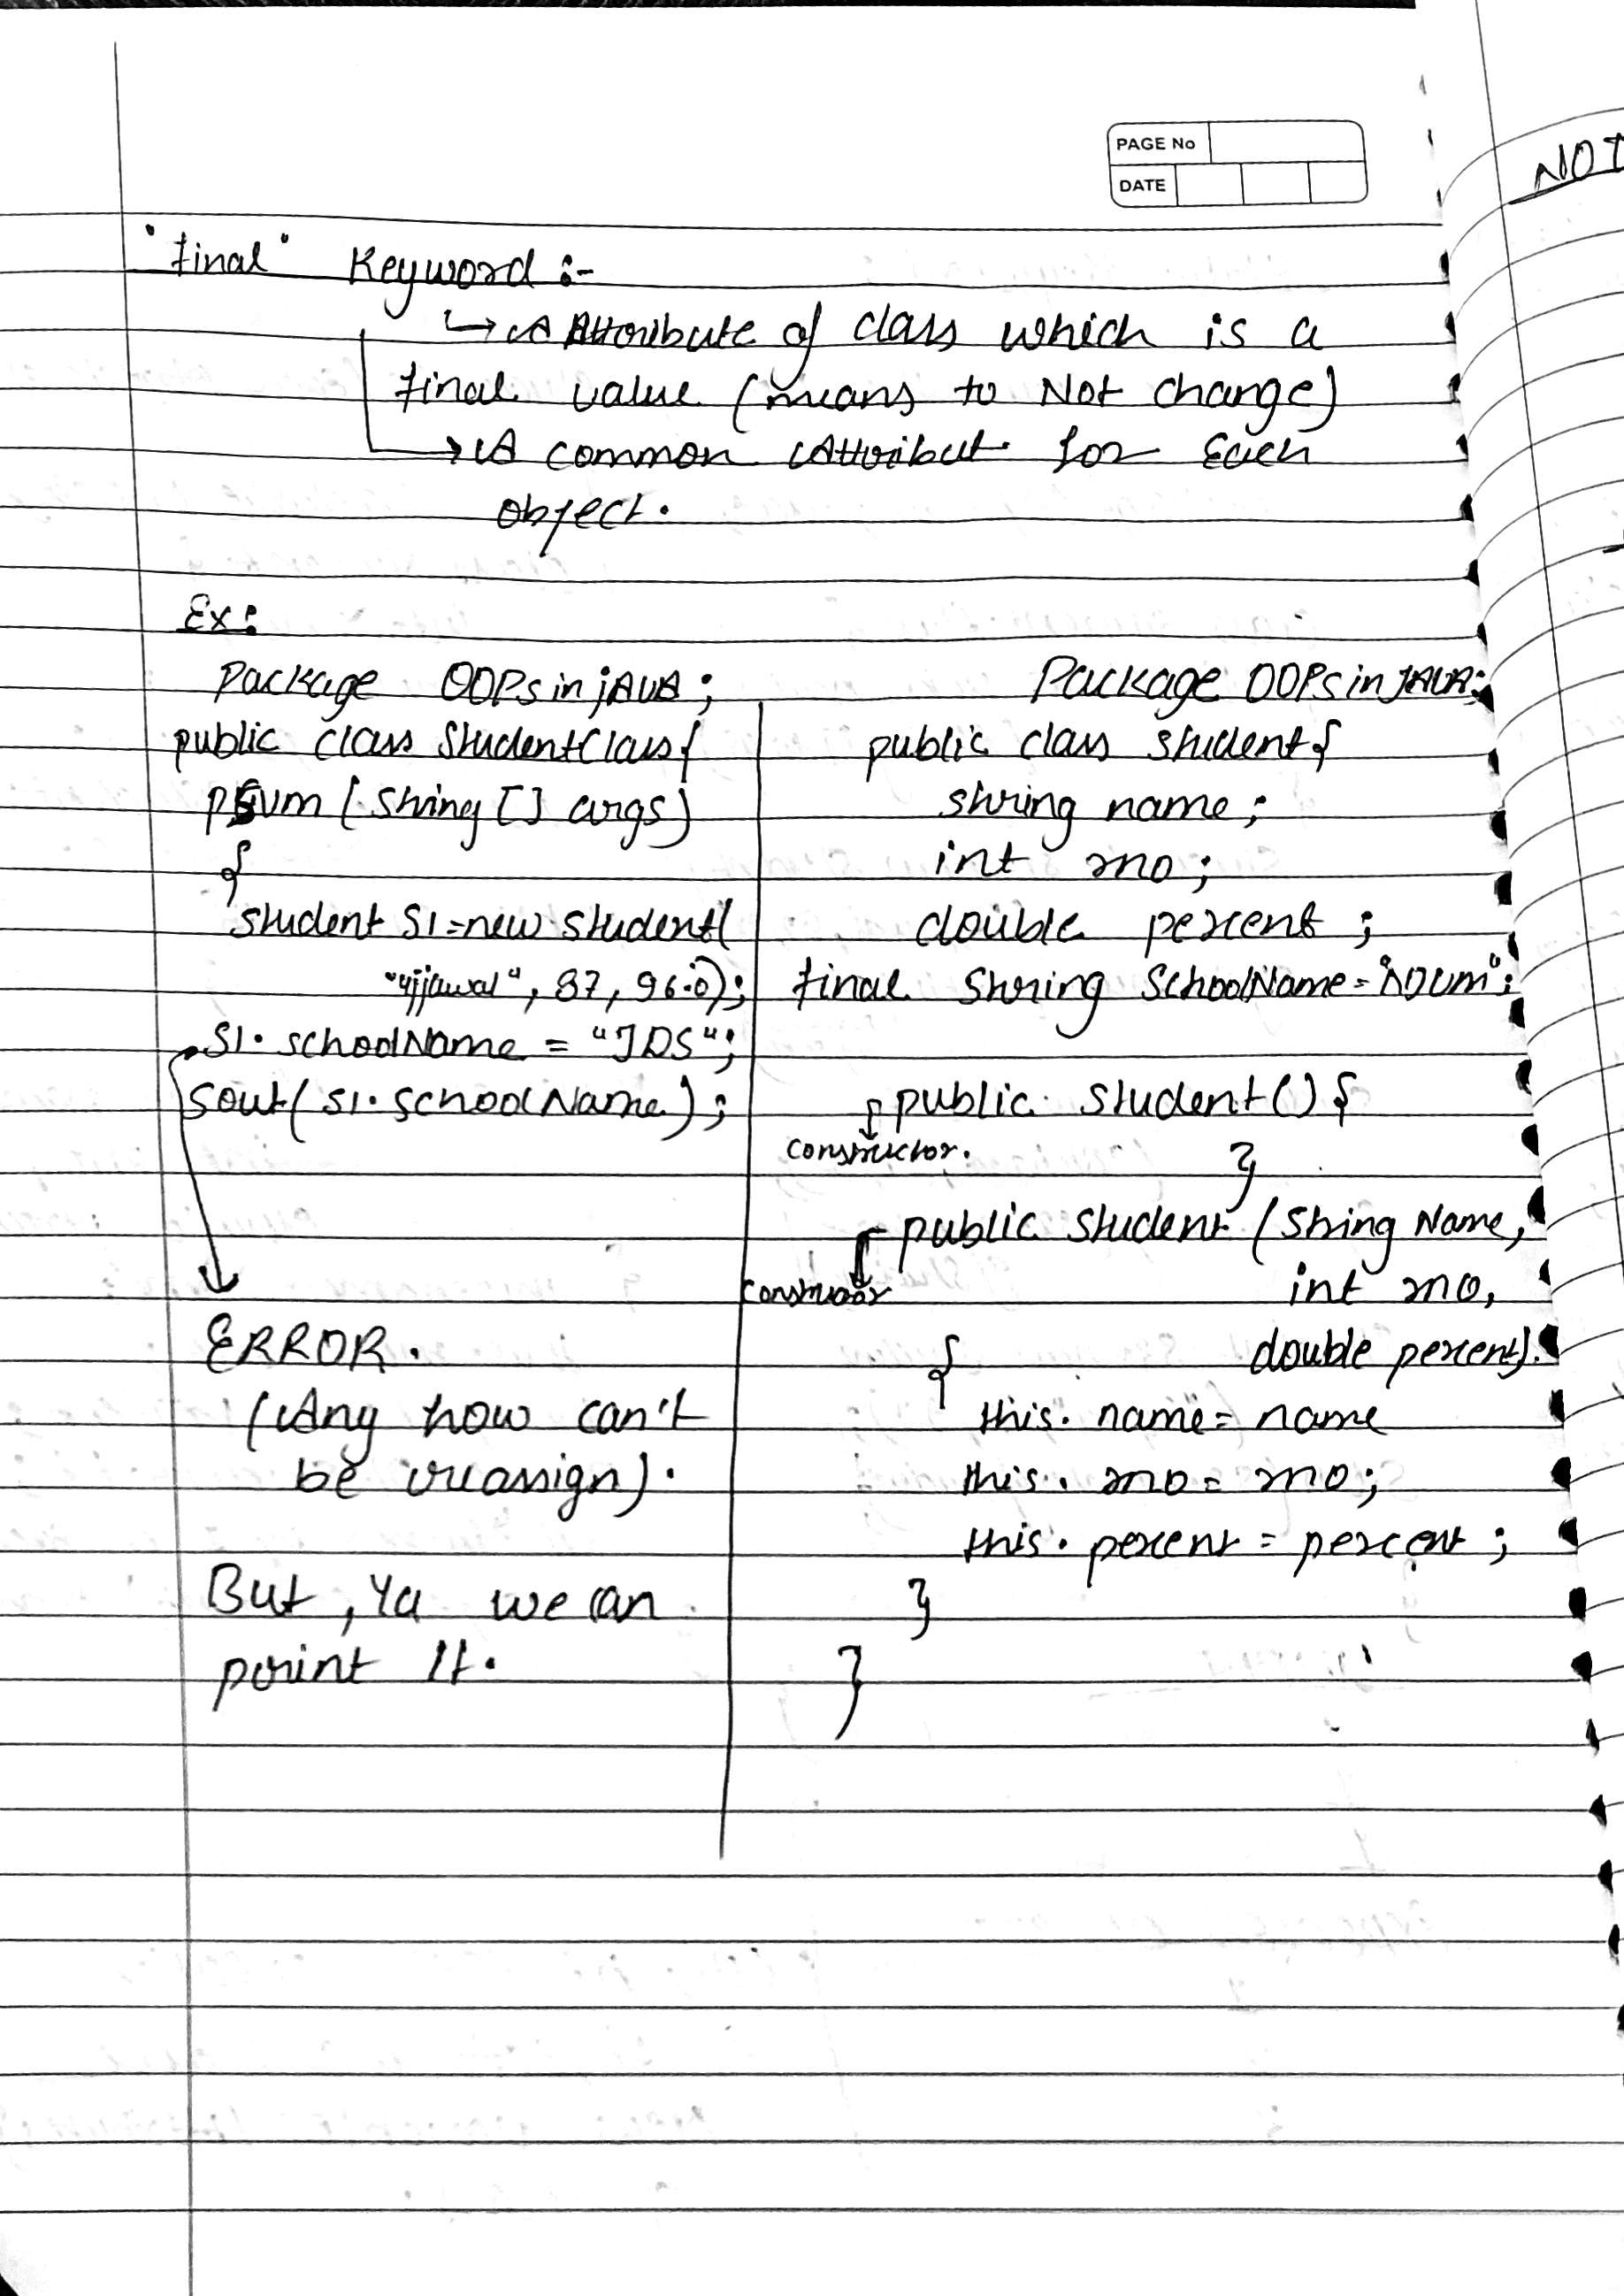 PAGE No
DATE
NOT
"final" Keyword :-
↳ A Attribute of class which is a
final value (means to Not change)
→ A common Attribut for Each
object.
Ex:
Package OOPsinjAVA ;
public class StudentClass{
psvm (String [] args)
{
Student S1=new Student(
"ujjawal", 87, 96.0);
S1. schoolName = "JDS";
Sout( s1. schoolName ) ;
ERROR.
(Any how can't
be reassign).
But, Ya we can
print It.
Package OOPsinJAVA;
public class student{
string name ;
int rno ;
double percent ;
final String SchoolName =
public Student() {
constructor.
}
public Student (String Name,
constructor
int rno,
double percent).
{
this. name = name
this. rno = rno ;
this. percent = percent ;
}
}